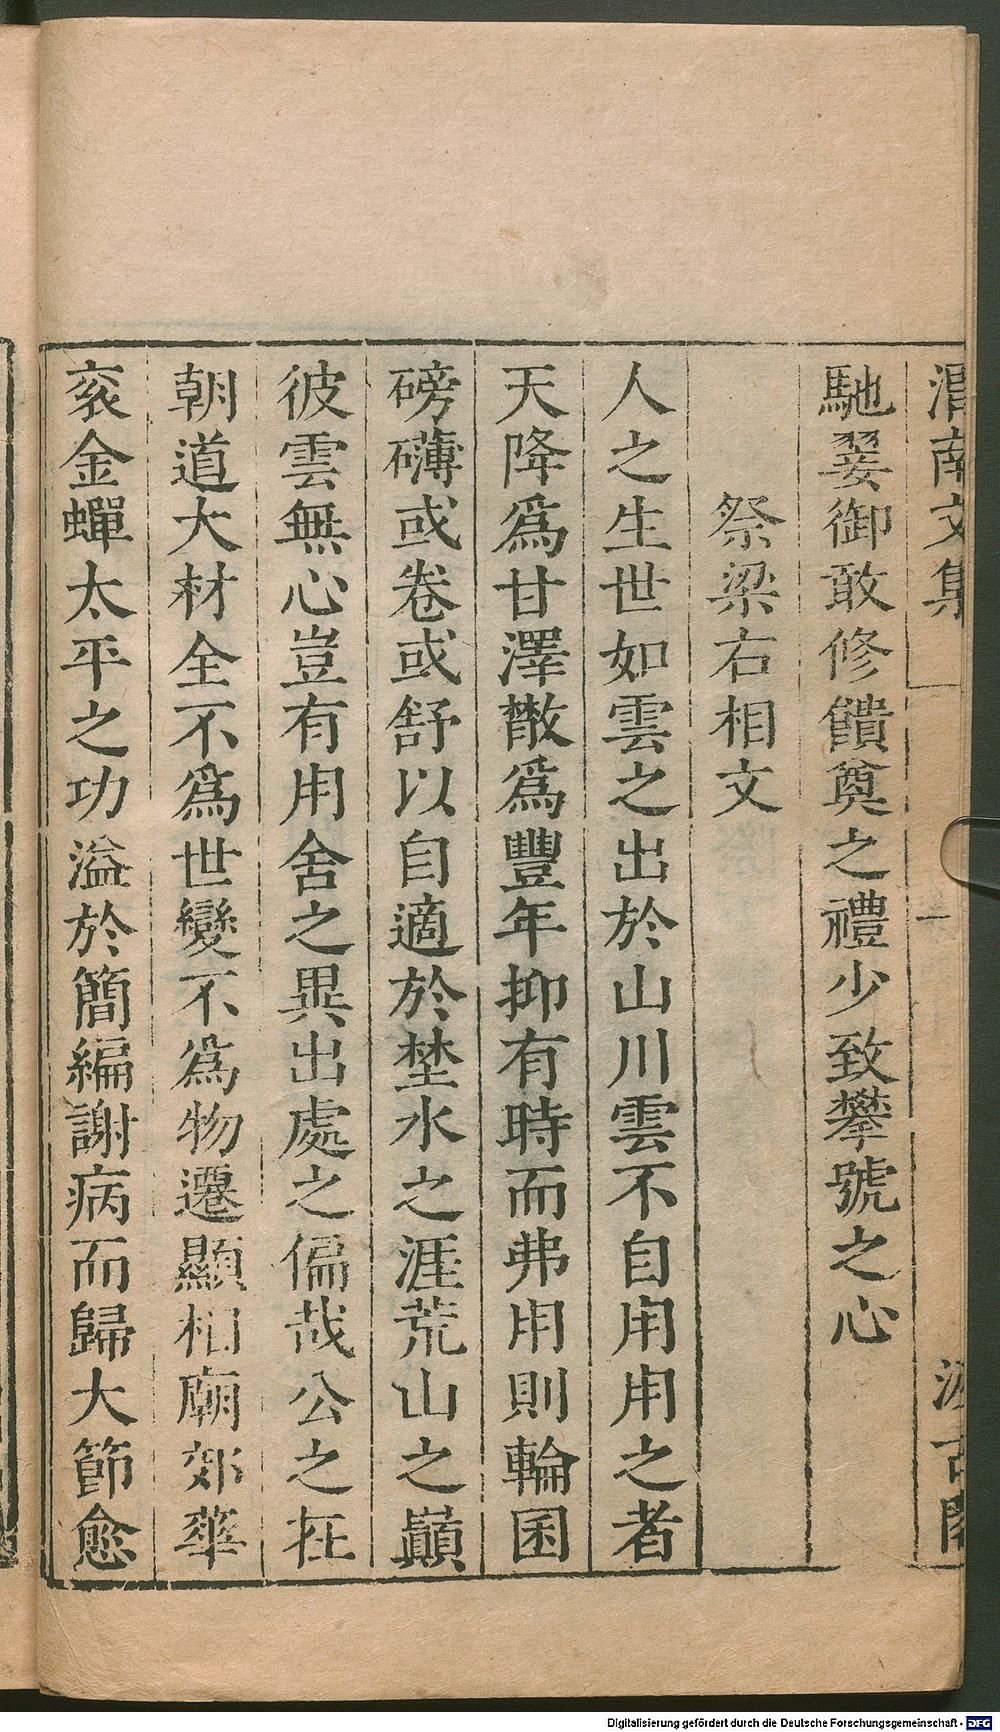 渭南文集 一 汲古閣
馳翣御敢修饋奠之禮少致攀號之心
祭梁右相文
人之生世如雲之出於山川雲不自用用之者
天降爲甘澤散爲豐年抑有時而弗用則輪囷
磅礴或卷或舒以自適於埜水之涯荒山之巔
彼雲無心豈有用舍之異出處之偏哉公之在
朝道大材全不爲世變不爲物遷顯相廟郊華
衮金蟬太平之功溢於簡編謝病而歸大節愈
Digitalisierung gefördert durch die Deutsche Forschungsgemeinschaft - DFG